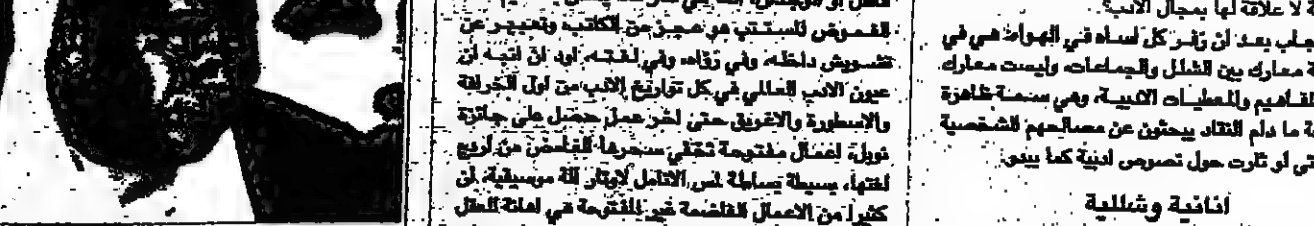 لا علاقة لها بمجال الأدب؟.
بعد أن زفر كل أساه في الهواء: هي في
معارك بين الشلل والجماعات، وليست معارك
المفاهيم والمعطيات الأدبية، وهي سمة ظاهرة
ما دام النقاد يبحثون عن مصالحهم الشخصية
لو ثارت حول نصوص أدبية كما يبدو.
انانية وشللية
الغموض المستتب هو عجز من الكاتب وتعبير عن
تشويش داخله، وفي رؤاه، وفي لغته، أود أن انبه أن
عيون الأدب العالمي في كل تواريخ الأدب من أول الخرافة
والاسطورة والاغريق حتى آخر عمل حصل على جائزة
نوبل، اعمال مفتوحة تخفي سحرها الغامض من أربع
لغتها، بسيطة بساطة لمس الانامل لاوتار آلة موسيقية، أن
كثيرا من الاعمال الغامضة غير المفتوحة هي اهانة للعقل